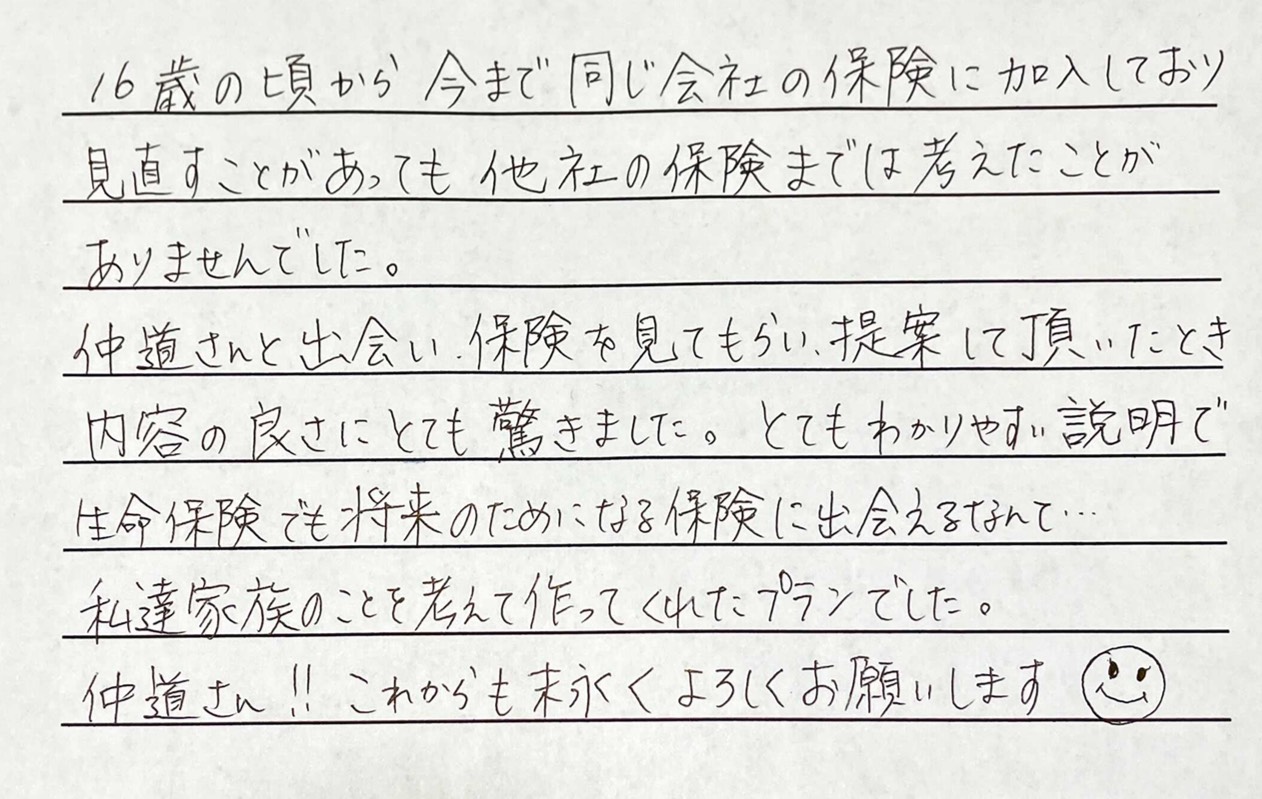 16歳の頃から今まで同じ会社の保険に加入しており
見直すことがあっても他社の保険までは考えたことが
ありませんでした。
仲道さんと出会い、保険を見てもらい、提案して頂いたとき
内容の良さにとても驚きました。とてもわかりやすい説明で
生命保険でも将来のためになる保険に出会えるなんて…
私達家族のことを考えて作ってくれたプランでした。
仲道さん!!これからも末永くよろしくお願いします